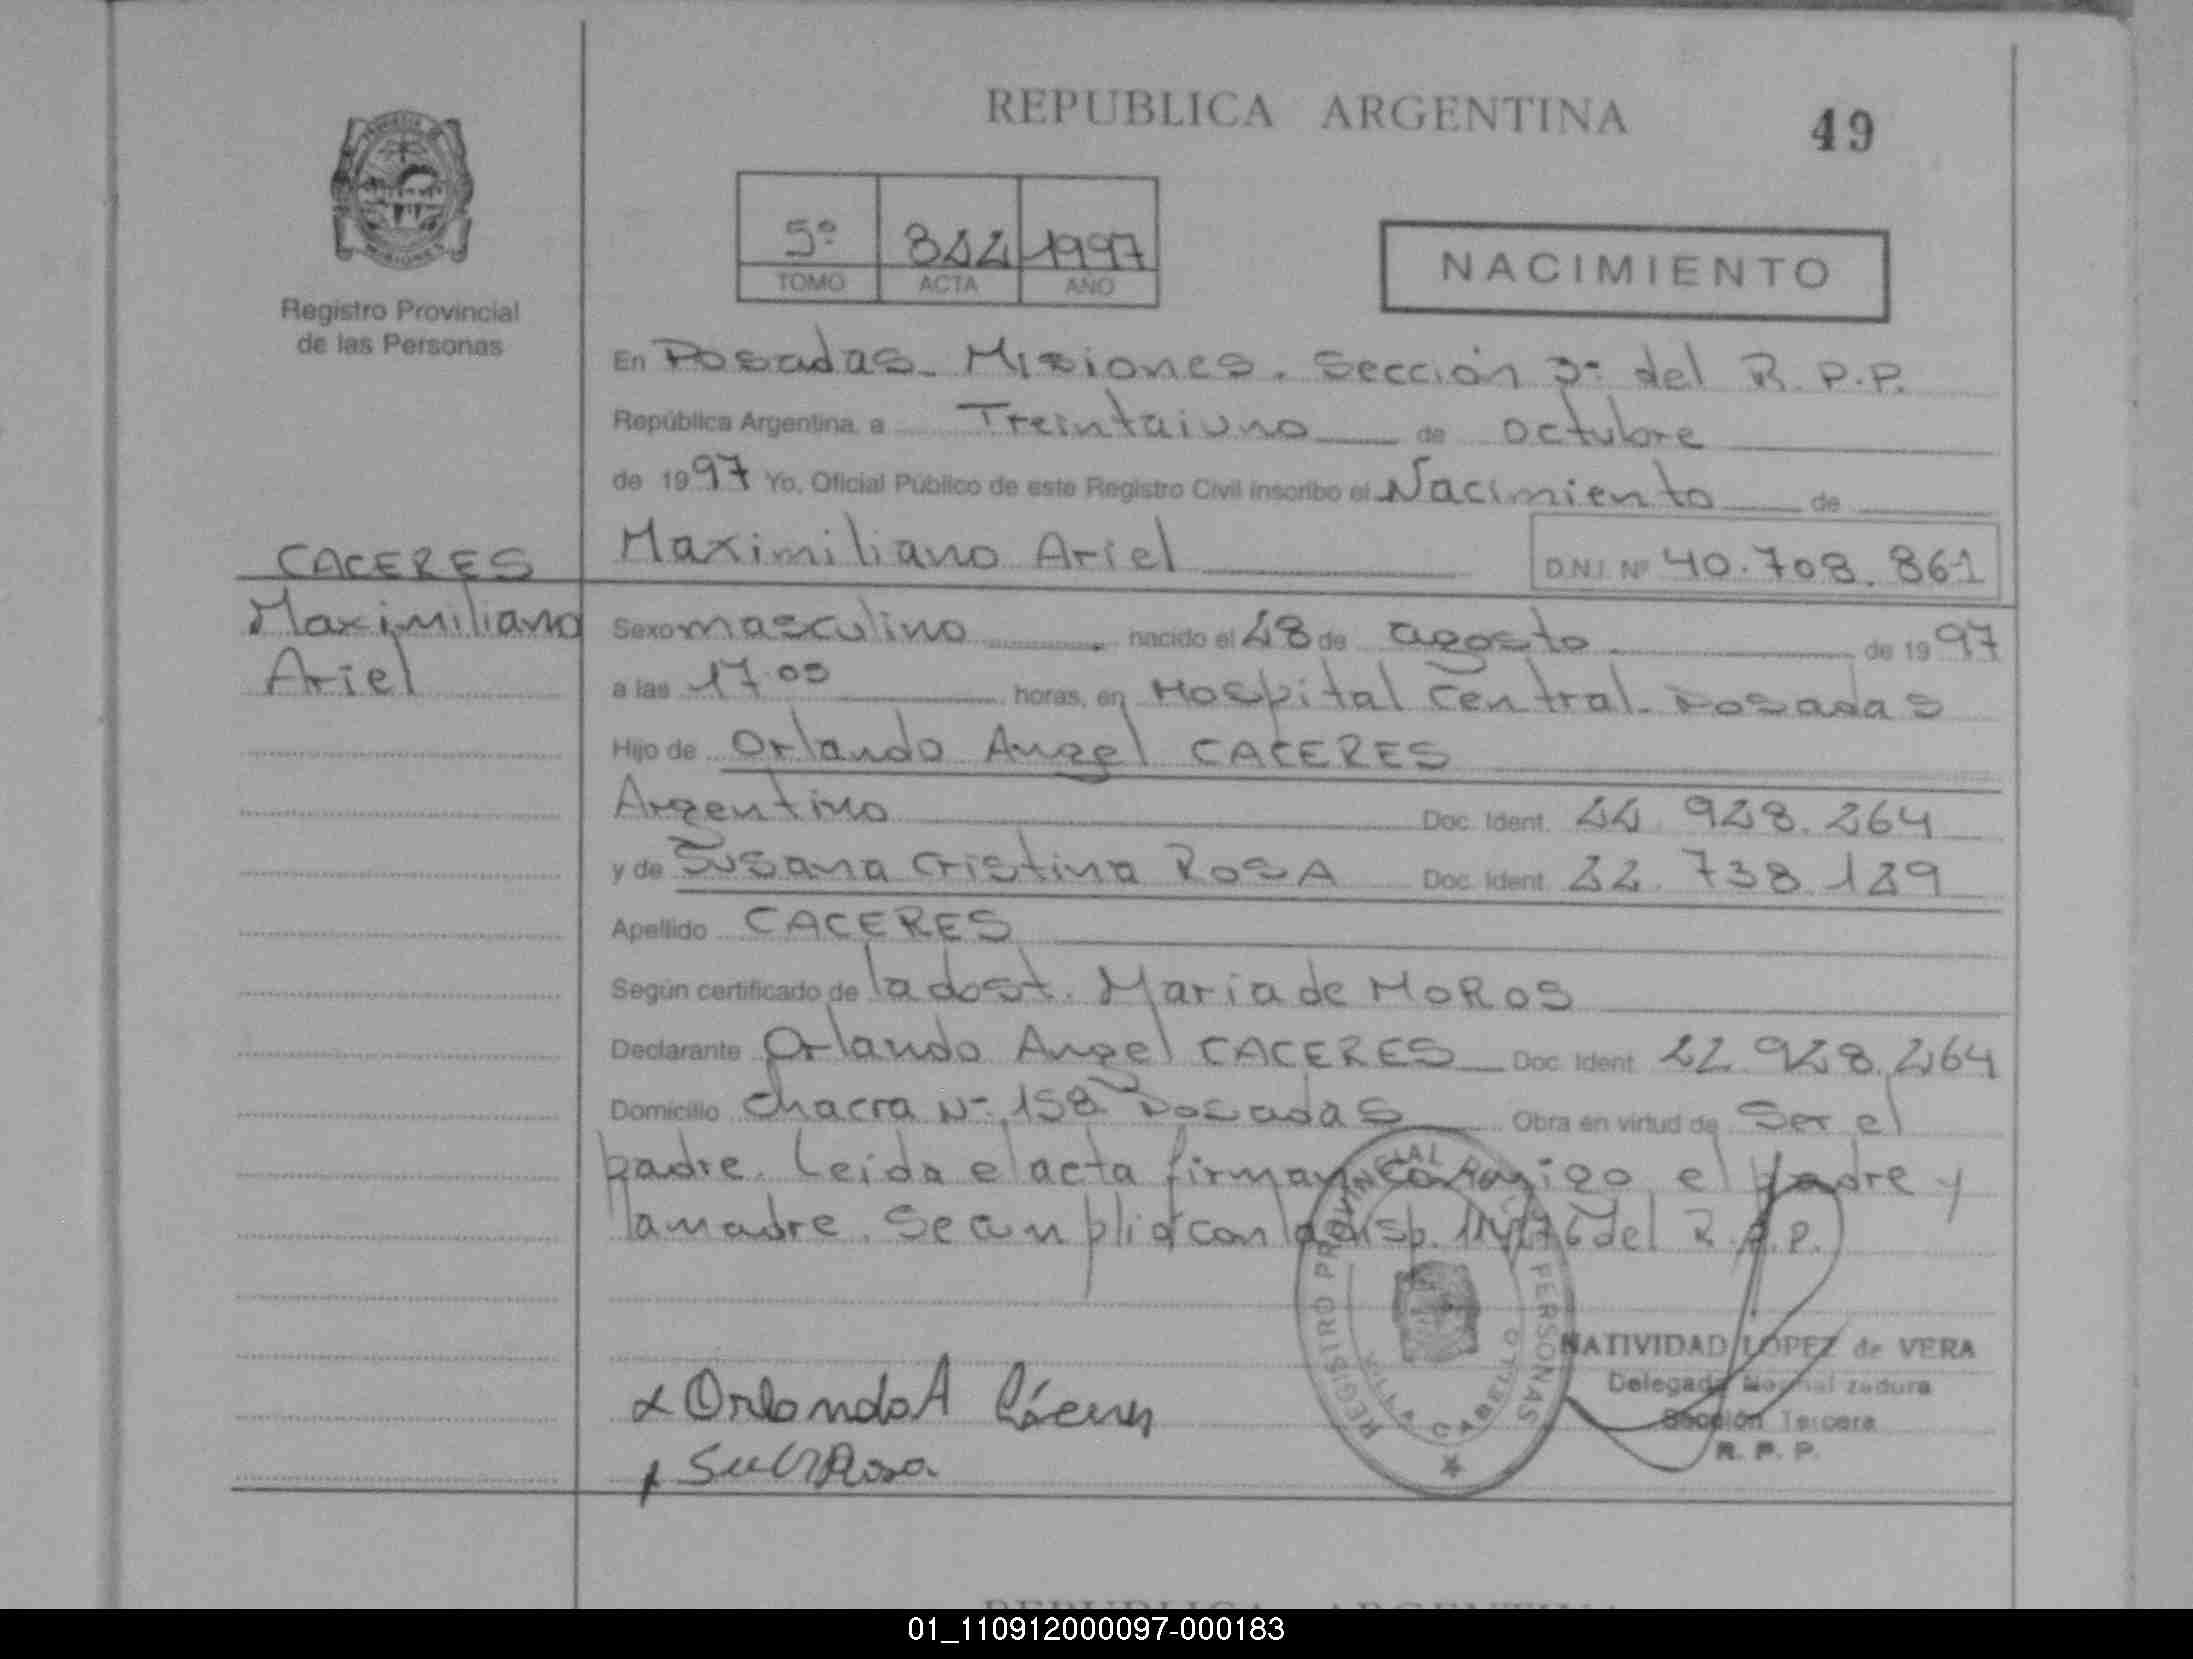 REPUBLICA ARGENTINA
49
5º 822 1997
TOMO ACTA AÑO
NACIMIENTO
Registro Provincial
de las Personas
En Posadas - Misiones. Sección 3ª del R.P.P.
República Argentina, a Treintaiuno de octubre
de 1997 Yo, Oficial Público de este Registro Civil inscribo el Nacimiento de
Maximiliano Ariel D.N.I. Nº 40.708.861
CACERES
Maximiliano
Ariel
Sexo masculino nacido el 28 de agosto de 1997
a las 17.05 horas, en Hospital Central - Posadas
Hijo de Orlando Angel CACERES
Argentino Doc. Ident. 22.928.264
y de Susana Cristina ROSA Doc. Ident. 22.738.129
Apellido CACERES
Según certificado de la dost. Maria de MOROS
Declarante Orlando Angel CACERES Doc. Ident. 22.928.264
Domicilio Chacra Nº 158 Posadas Obra en virtud de ser el
padre. Leida el acta firman conmigo el padre y
la madre. Se cumplió con la disp. del R.P.P.
REGISTRO PROVINCIAL PERSONAS
NATIVIDAD LOPEZ de VERA
Delegada Normalizadora
Sección Tercera
R. P. P.
x Orlando A Cáceres
x Rosa
REPUBLICA ARGENTINA
01_110912000097-000183